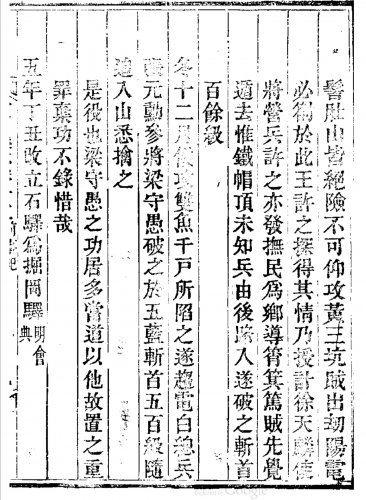 髻肚山皆絕險不可仰攻黃三坑賊出刼陽電
必徇於此王許之探得其情乃授計徐天麟使
將營兵許之亦發撫民為鄉導筲箕篤賊先覺
遁去惟鐵帽頂未知兵由後路入遂破之斬首
百餘級
冬十二月 攻雙魚千戶所陷之遂趨電白總兵
張元勳參將梁守愚破之於五藍斬首五百級隨
追入山悉擒之
是役也梁守愚之功居多當道以他故置之重
罪棄功不錄惜哉
五年丁丑改立石驛為掘岡驛 明會典
Google